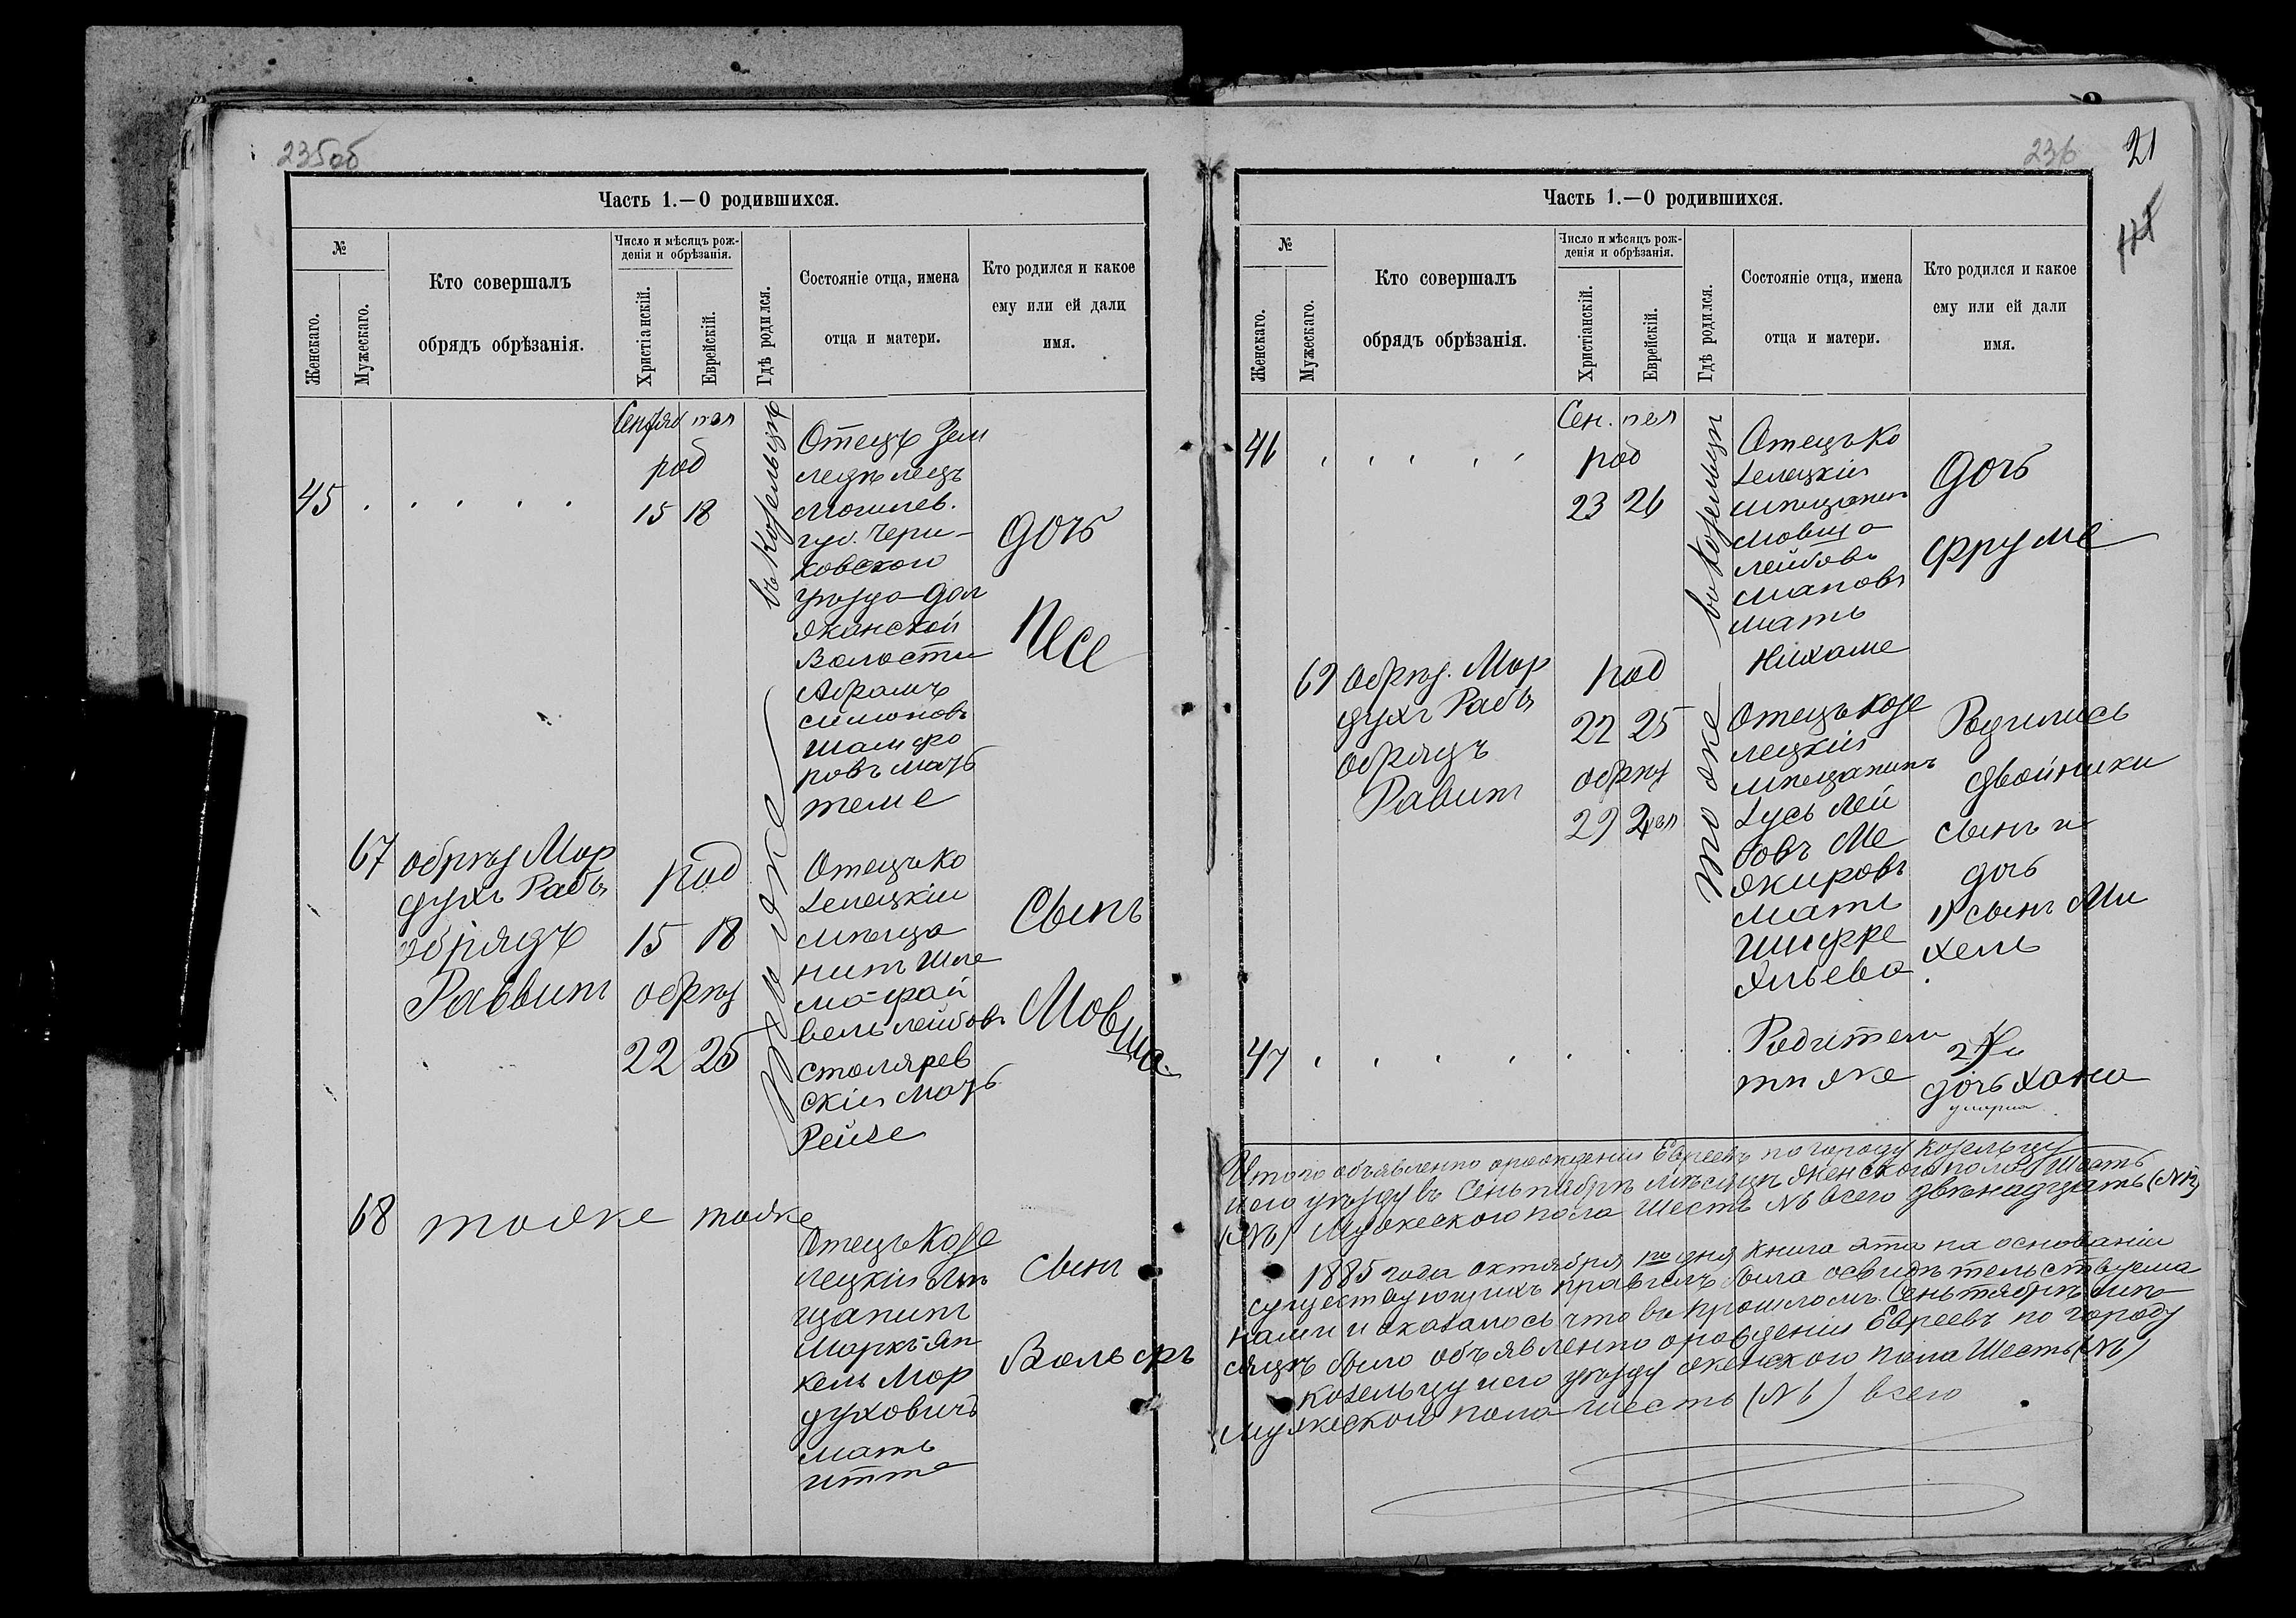 235об
Часть 1.—О родившихся.
№
Женскаго.
Мужескаго.
Кто совершалъ
обрядъ обрѣзанія.
Число и мѣсяцъ рож-
денія и обрѣзанія.
Христіанскій.
Еврейскій.
Гдѣ родился.
Состояніе отца, имена
отца и матери.
Кто родился и какое
ему или ей дали
имя.
45
род
15 18
въ Козельцѣ
Отецъ Зем
ледѣлецъ
Могилев.
губ. Чери-
ковского
уѣзда Дол
жанской
Волости
Абрамъ
Симоновъ
мать
теме
дочь
Песе
67
обрѣз Мор
духъ Рабъ
обрядъ
Раввинъ
род
15 18
обрѣз
22 25
тоже
Отецъ Ко
зелецкій
мѣща
нинъ Шле
ма-фай
вель Лейбовъ
столярев
скій мать
Рейзе
Сынъ
Мовша.
68
тоже
тоже
Отецъ Козе
лецкій мѣ
щанинъ
Маркъ-Ян
кель Мор
духовичъ
мать
итта
Сынъ
Вольфъ
236
21
Часть 1.—О родившихся.
№
Женскаго.
Мужескаго.
Кто совершалъ
обрядъ обрѣзанія.
Число и мѣсяцъ рож-
денія и обрѣзанія.
Христіанскій.
Еврейскій.
Гдѣ родился.
Состояніе отца, имена
отца и матери.
Кто родился и какое
ему или ей дали
имя.
46
Сен.
род
23 26
въ Козельцѣ
Отецъ Ко
зелецкій
мѣщанинъ
Мовша
Лейбовъ
мать
Нихаме
дочь
фруме
69
обрѣз. Мор
духъ Рабъ
обрядъ
Равинъ
род
22 25
обрѣз
29
тоже
Отецъ козе
лецкій
мѣщанинъ
Зусь Лей
бовъ Ме
жировъ
мать
Шифре
Хльева.
Родились
двойники
сынъ и
дочь
1) сынъ Ми
хель
47
Родители
тѣ же
2)
дочь Хана
умерла
Итого объявленно о рожденіи Евреевъ по городу Козельцу
и его уѣзду въ Сентябрѣ мѣсяцѣ Женского пола Шесть
(№6) Мужеского пола Шесть №6 всего двѣнадцать (№12)
1885 года октября 1го дня книга эта на основаніи
существующихъ правилъ была освидѣтельствуема
нами и оказалось что въ прошломъ Сентябрѣ мѣ-
сяцѣ было объявленно о рожденіи Евреевъ по городу
Козельцу и его уѣзду женского пола Шесть (№6)
Мужеского пола шесть (№6) всего